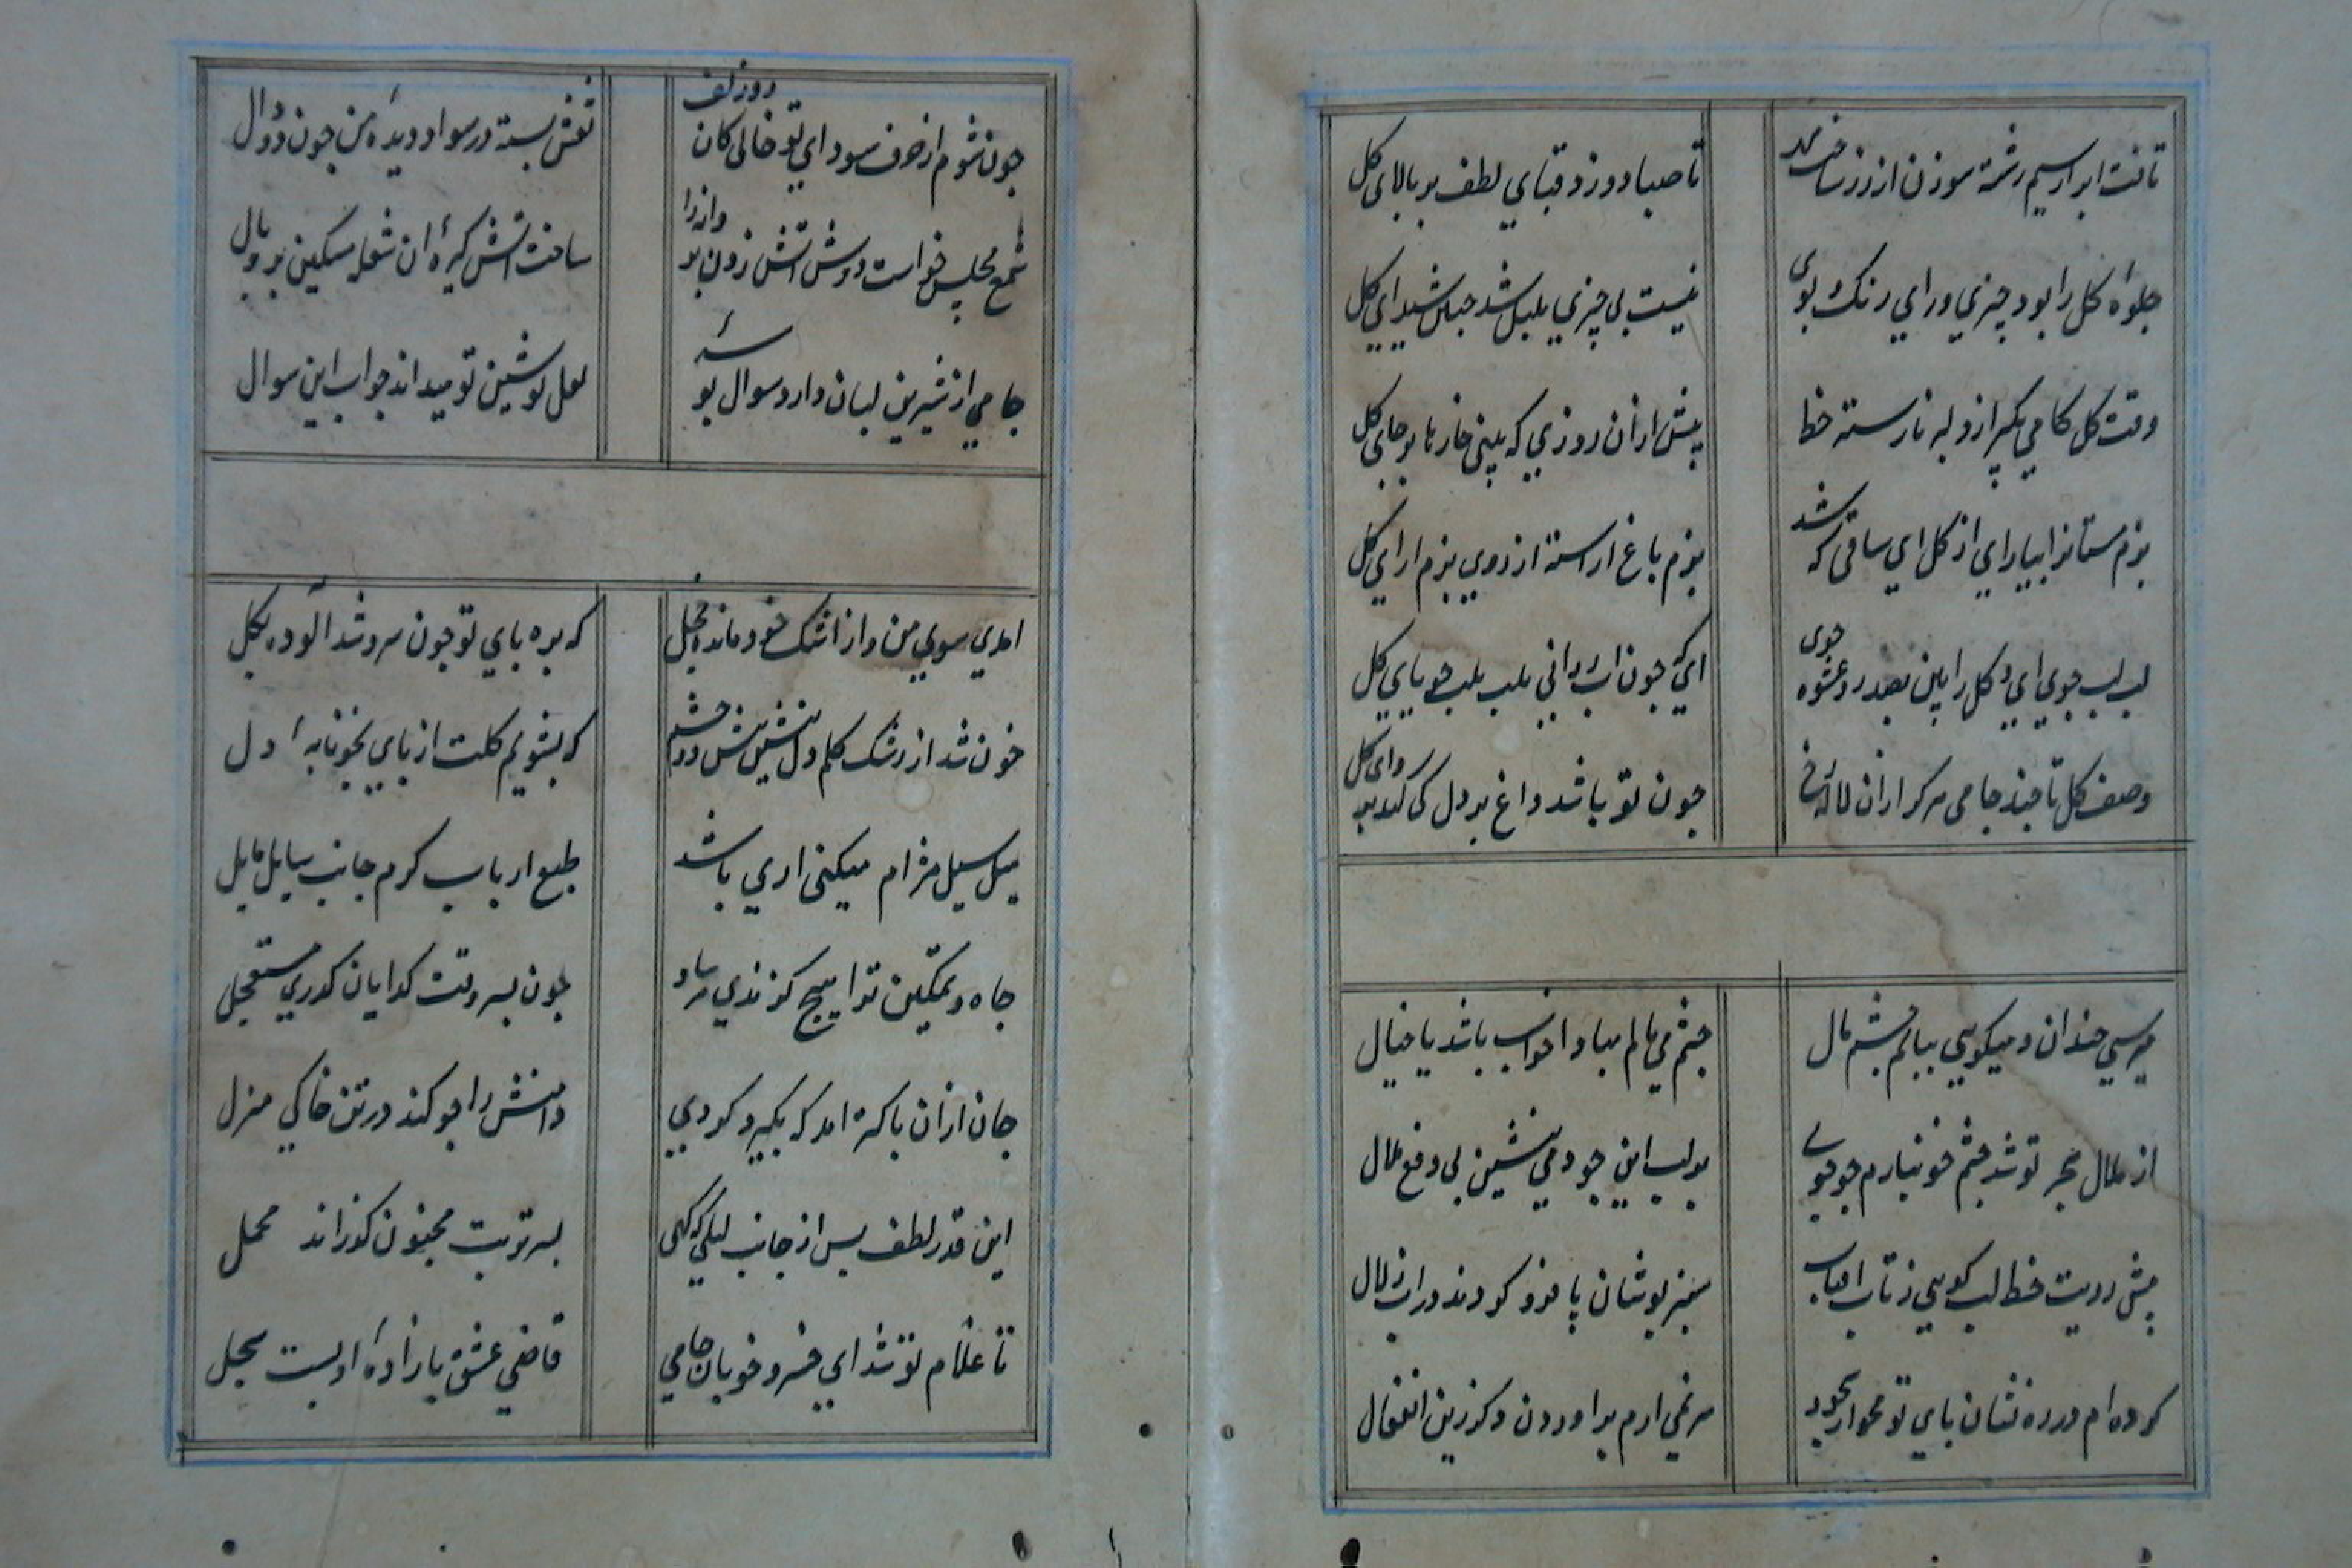 تافت ابر از سیم رشته سوزن از زر ساخت مهر
تا صبا دوزد قبای لطف بر بالای کل
جلوه کل را بود چیزی ورای رنک و بوی
نیست بی چیزی بلبل شد جنین شیدای کل
وقت کل کامی بکیر از دلبر نارسته خط
پیش ازان روزی که بینی خارها بر جای کل
بزم مستانرا بیارای از کل ای ساقی که شد
بزم باغ اراسته از روی بزم ارای کل
لب بلب جوی ای و کل را بین بصد رو عشوه جوی
ای که جون اب روانی بلب بلب جویای کل
وصف کل تا جند جامی هرکرا زان لاله رخ
جون تو باشد داغ بر دل کی کند بروای کل
میرسی خندان و میکویی ببایم جشم مال
جشم می مالم مبادا خواب باشد یا خیال
از ملال هجر تو شد جشم خونبارم جو جوی
بر لب این جو دمی بنشین بی دفع ملال
پیش رویت خط لب کویی ز تاب افتاب
سبز پوشان پا فرو کردند در اب زلال
کرده ام در ره نشان بای تو محو از سجود
سر نمی ارم براوردن دکر زین انفعال
جون نشوم از حرف سودای تو خالی کان دو زلف
نقش بسته در سواد دیده من جون دو دال
شمع مجلس خواست دوش اتش زدن پروانه را
ساخت اتش کیره ان شعله مسکین پر و بال
جامی از شیرین لبان دارد سوال بوسه
لعل نوشین تو میداند جواب این سوال
امدی سوی من و از اشک خودم مانده خجل
که بره بای تو جون سرو شد الوده بکل
خون شد از رشک کلم دل بنشین پیش دو چشم
که بشویم کلت از بای بخونابه دل
میل سیل مژه ام میکنی اری باشد
طبع ارباب کرم جانب سایل مایل
جاه و تمکین ترا هیچ کزندی مرساد
جون بسر وقت کدایان کذری مستعجل
جان ازان باکتر امد که بکیرد کردی
دامنش را جو کند در تن خاکی منزل
این قدر لطف بس از جانب لیلی که کهی
بسر تربت مجنون کذراند محمل
تا غلام تو شد ای خسرو خوبان جامی
قاضی عشق بازاده او بست سجل